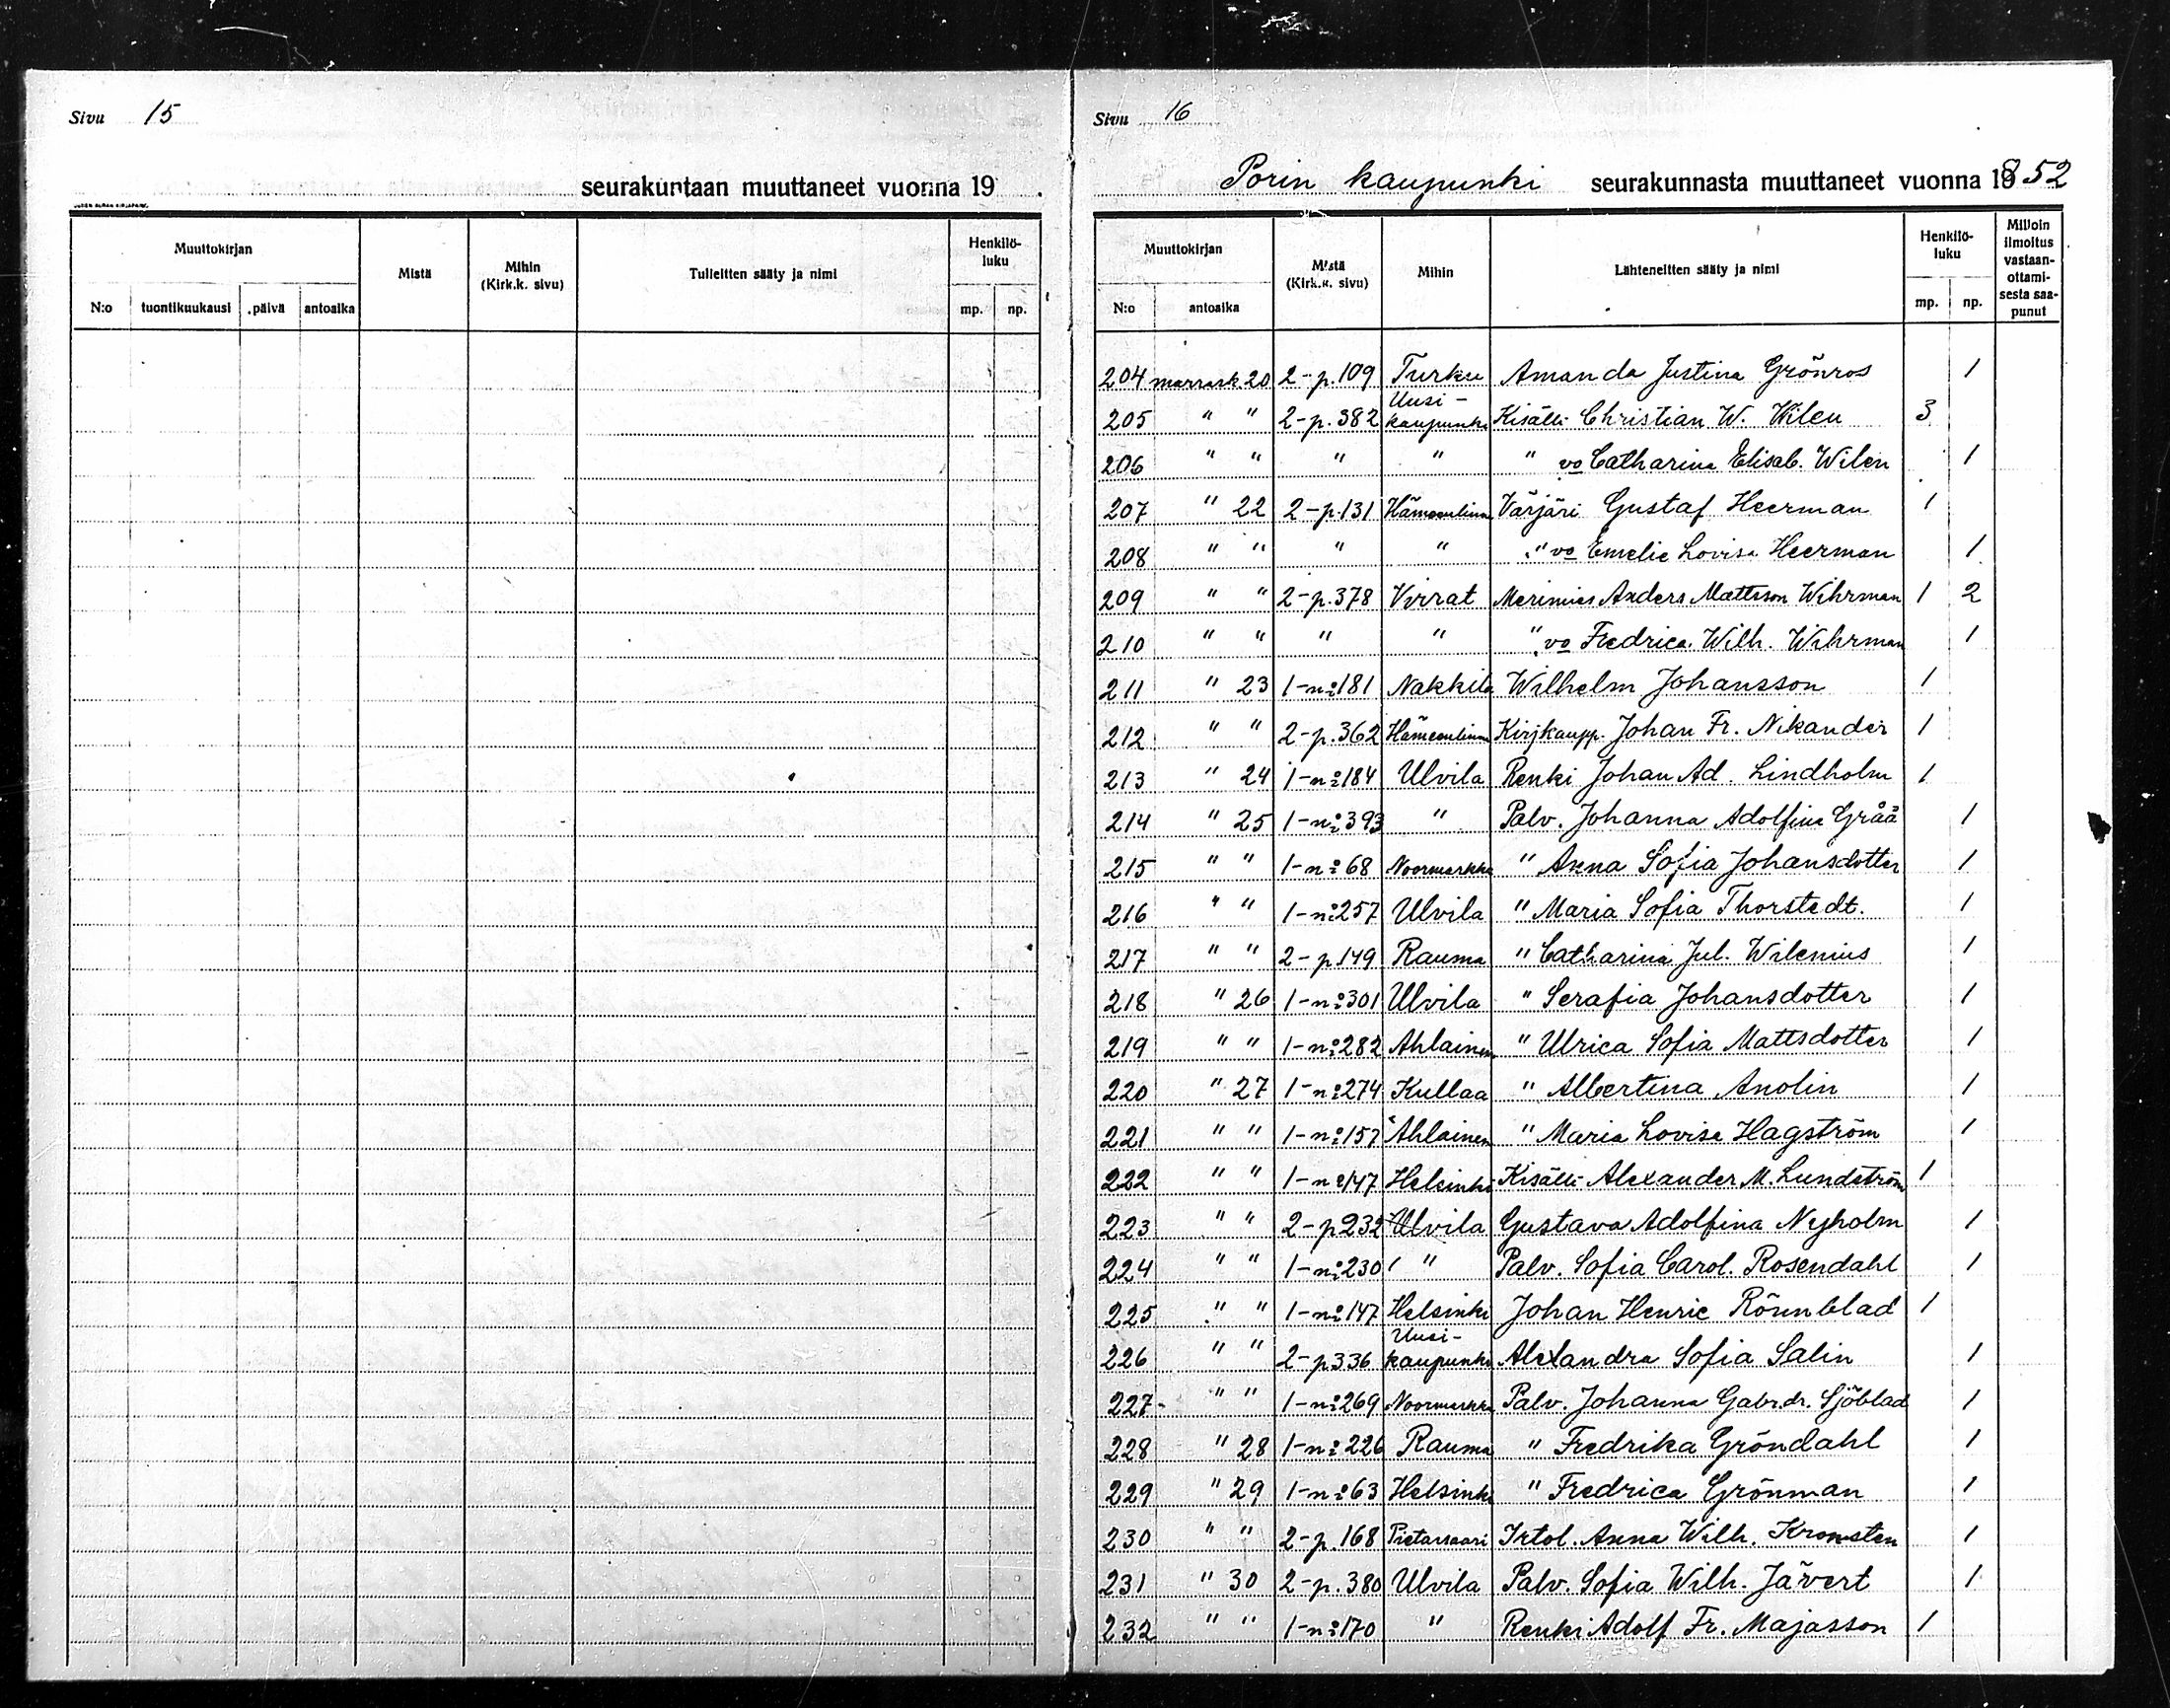 Sivu 15
seurakuntaan muuttaneet vuonna 19 .
Muuttokirjan Mistä Mihin (Kirk.k. sivu) Tulleitten sääty ja nimi Henkilö-luku
N:o tuontikuukausi päivä antoaika mp. np.
Sivu 16
Porin kaupunki seurakunnasta muuttaneet vuonna 1852
Muuttokirjan Mistä (Kirk.k. sivu) Mihin Lähteneitten sääty ja nimi Henkilö-luku Milloin ilmoitus vastaan-ottami-sesta saa-punut
N:o antoaika mp. np.
204 marrask 20 2-p.109 Turku Amanda Justina Grönros 1
205 " " 2-p.382 Uusi-kaupunki Kisälli Christian W. Wilen 3
206 " " " " " vo Catharina Elisab. Wilen 1
207 " 22 2-p.131 Hämeenlinna Värjäri Gustaf Heerman 1
208 " " " " " vo Emelie Lovisa Heerman 1
209 " " 2-p.378 Virrat Merimies Anders Mattsson Wihrman 1 2
210 " " " " " vo Fredrica Wilh. Wihrman 1
211 " 23 1-no181 Nakkila Wilhelm Johansson 1
212 " " 2-p.362 Hämeenlinna Kirjkaupp. Johan Fr. Nikander 1
213 " 24 1-no184 Ulvila Renki Johan Ad. Lindholm 1
214 " 25 1-no393 " Palv. Johanna Adolfina Gråå 1
215 " " 1-no68 Noormarkku " Anna Sofia Johansdotter 1
216 " " 1-no257 Ulvila " Maria Sofia Thorstedt. 1
217 " " 2-p.149 Rauma " Catharina Jul. Wilenius 1
218 " 26 1-no301 Ulvila " Serafia Johansdotter 1
219 " " 1-no282 Ahlainen " Ulrica Sofia Mattsdotter 1
220 " 27 1-no274 Kullaa " Albertina Anolin 1
221 " " 1-no157 Ahlainen " Maria Lovisa Hagström 1
222 " " 1-no147 Helsinki Kisälli Alexander M. Lundström 1
223 " " 2-p232 Ulvila Gustava Adolfina Nyholm 1
224 " " 1-no230 " Palv. Sofia Carol. Rosendahl 1
225 " " 1-no147 Helsinki Johan Henric Rönnblad 1
226 " " 2-p336 Uusi-kaupunki Alexandra Sofia Salin 1
227 " " 1-no269 Noormarkku Palv. Johanna Gabr.dr. Sjöblad 1
228 " 28 1-no226 Rauma " Fredrika Gröndahl 1
229 " 29 1-no63 Helsinki " Fredrica Grönman 1
230 " " 2-p.168 Pietarsaari Irtol. Anna Wilh. Kronsten 1
231 " 30 2-p.380 Ulvila Palv. Sofia Wilh. Jävert 1
232 " " 1-no170 " Renki Adolf Fr. Majasson 1